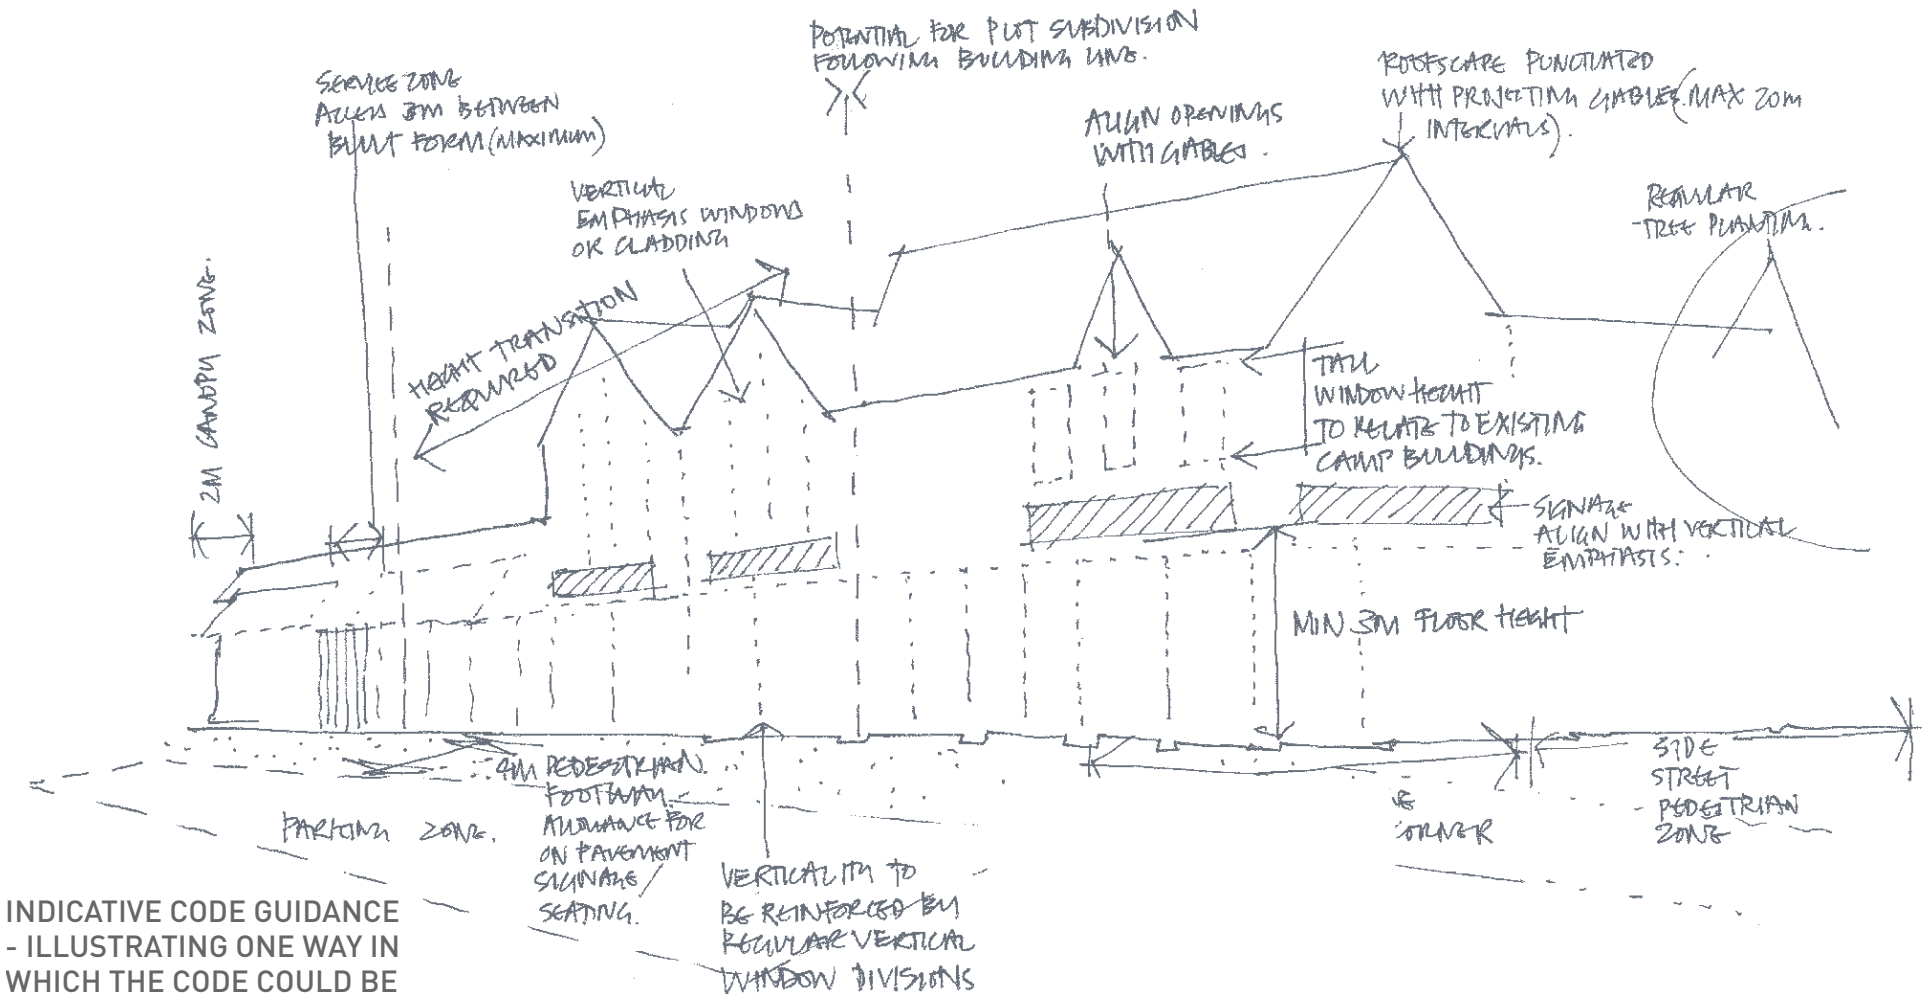 POTENTIAL FOR PLOT SUBDIVISION
FOLLOWING BUILDING LINE.
SERVICE ZONE
ACCESS 3M BETWEEN
BUILT FORM (MAXIMUM)
ROOFSCAPE PUNCTUATED
WITH PROJECTING GABLES (MAX 20m
INTERVALS).
ALIGN OPENINGS
WITH GABLES.
VERTICAL
EMPHASIS WINDOWS
OR CLADDING
REGULAR
TREE PLANTING.
2M CANOPY ZONE.
HEIGHT TRANSITION
REQUIRED
TALL
WINDOW HEIGHT
TO RELATE TO EXISTING
CAMP BUILDINGS.
SIGNAGE
ALIGN WITH VERTICAL
EMPHASIS.
MIN 3M FLOOR HEIGHT
4M PEDESTRIAN.
FOOTWAY.
ALLOWANCE FOR
ON PAVEMENT
SIGNAGE
SEATING.
PARKING ZONE.
VERTICALITY TO
BE REINFORCED BY
REGULAR VERTICAL
WINDOW DIVISIONS
ORNER
SIDE
STREET
PEDESTRIAN
ZONE
INDICATIVE CODE GUIDANCE
- ILLUSTRATING ONE WAY IN
WHICH THE CODE COULD BE